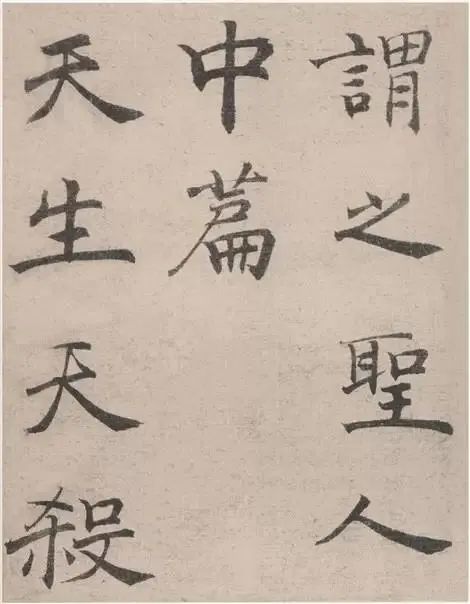 謂之聖人
中篇
天生天殺